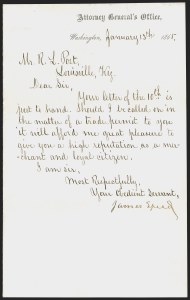 Attorney General's Office,
Washington, January 13th 1865.
Mr R. L. Post,
Louisville, Ky.
Dear Sir,
Your letter of the 10th is
just to hand. Should I be called on in
the matter of a trade permit to you
it will afford me great pleasure to
give you a high reputation as a mer-
chant and loyal citizen.
I am sir,
Most Respectfully,
Your Obedient Servant,
James Speed